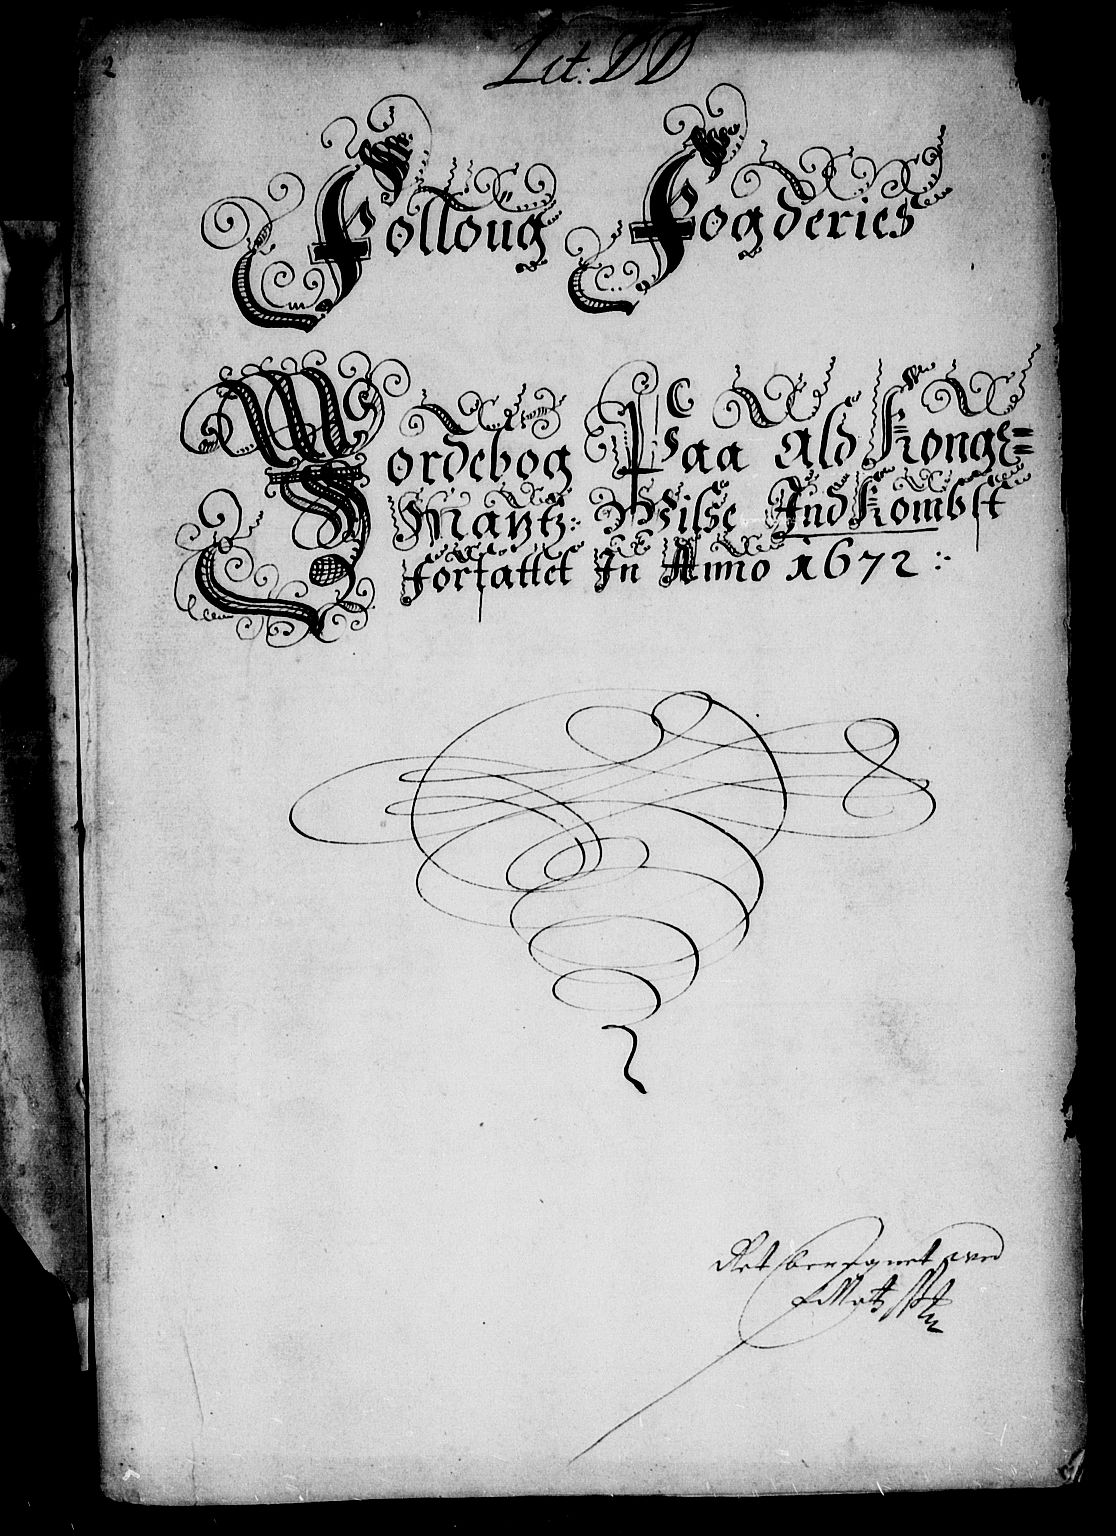 2
Lit: DD
Folloug Fogderies
Jordebog Paa Ald Konge=
Maÿtz: Wilse IndKombst
forfattet In Anno 1672 :
Ret beregnet